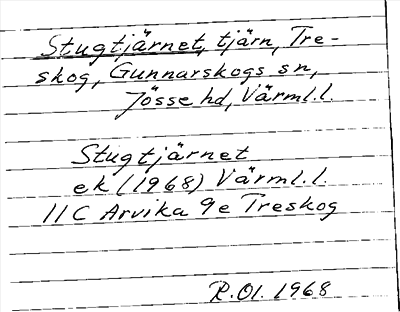 Stugtjärnet, tjärn, Tre-
skog, Gunnarskogs sn,
Jösse hd, Värml.l.
Stugtjärnet
ek (1968) Värml.l.
11C Arvika 9e Treskog
R.Ol. 1968